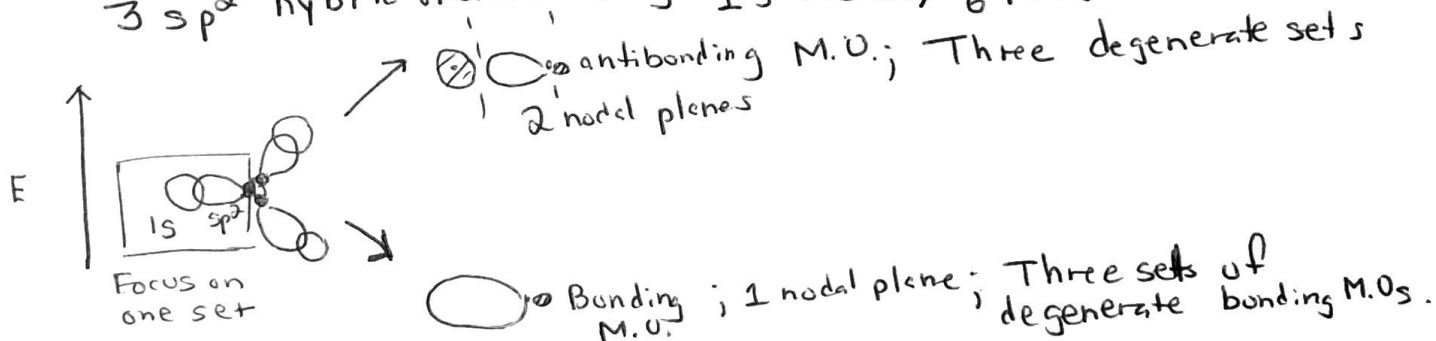 3 sp²
antibonding M.O.; Three degenerate sets
2 nodal planes
E
1s sp²
Focus on
one set
Bonding ; 1 nodal plane; Three sets of
M.O. degenerate bonding M.Os.